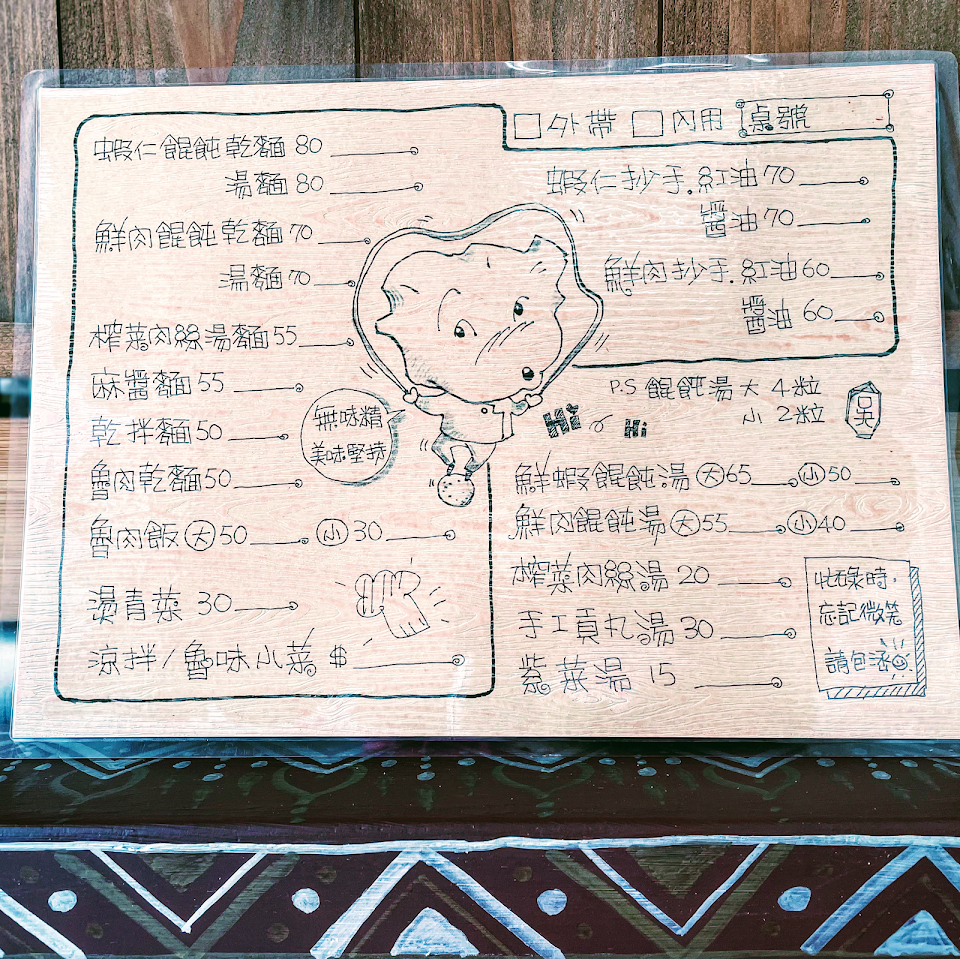 □外帶 □內用 桌號
蝦仁餛飩乾麵 80
湯麵 80
鮮肉餛飩乾麵 70
湯麵 70
榨菜肉絲湯麵 55
麻醬麵 55
乾拌麵 50
魯肉乾麵 50
魯肉飯 大 50 小 30
燙青菜 30
涼拌/魯味小菜 $
無味精
美味堅持
Hi Hi
蝦仁抄手.紅油 70
醬油 70
鮮肉抄手.紅油 60
醬油 60
P.S 餛飩湯 大 4粒
小 2粒
吳
鮮蝦餛飩湯 大 65 小 50
鮮肉餛飩湯 大 55 小 40
榨菜肉絲湯 20
手工貢丸湯 30
紫菜湯 15
忙碌時,
忘記微笑
請包涵